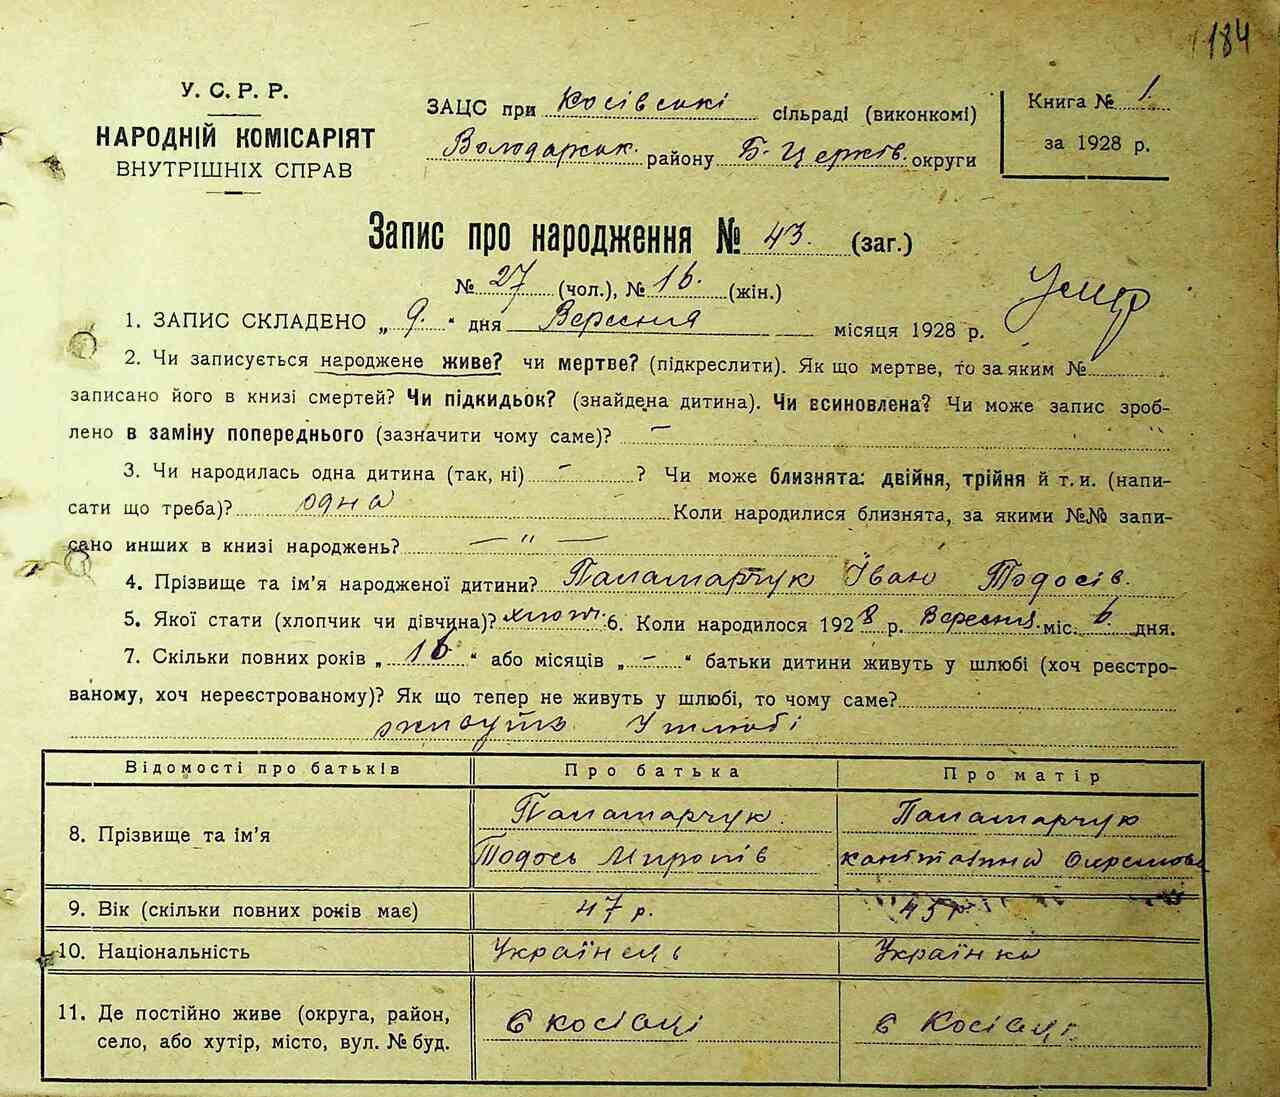 184
У. С. Р. Р.
НАРОДНІЙ КОМІСАРІЯТ
ВНУТРІШНІХ СПРАВ
ЗАЦС при Косівські сільраді (виконкомі)
Володарськ. району Б-Церків. округи
Книга № 1
за 1928 р.
Запис про народження № 43. (заг.)
№ 27 (чол.), № 16. (жін.)
Умер
1. ЗАПИС СКЛАДЕНО „ 9. “ дня Вересня місяця 1928 р.
2. Чи записується народжене живе? чи мертве? (підкреслити). Як що мертве, то за яким №
записано його в книзі смертей? Чи підкидьок? (знайдена дитина). Чи всиновлена? Чи може запис зроб-
лено в заміну попереднього (зазначити чому саме)? —
3. Чи народилась одна дитина (так, ні) - ? Чи може близнята: двійня, трійня й т. и. (напи-
сати що треба)? одна Коли народилися близнята, за якими №№ запи-
сано инших в книзі народжень? — " —
4. Прізвище та ім’я народженої дитини? Паламарчук Іван Тодосів.
5. Якої стати (хлопчик чи дівчина)? хлоп. 6. Коли народилося 1928 р. Вересня міс. 6 дня.
7. Скільки повних років „ 16 “ або місяців „ - “ батьки дитини живуть у шлюбі (хоч реєстро-
ваному, хоч нереєстрованому)? Як що тепер не живуть у шлюбі, то чому саме?
живуть У шлюбі
Відомості про батьків Про батька Про матір
8. Прізвище та ім’я
Паламарчук. Паламарчук
Тодось
9. Вік (скільки повних років має) 47 р. 45 р.
10. Національність Українець Українка
11. Де постійно живе (округа, район,
село, або хутір, місто, вул. № буд.
в косівці в Косівці